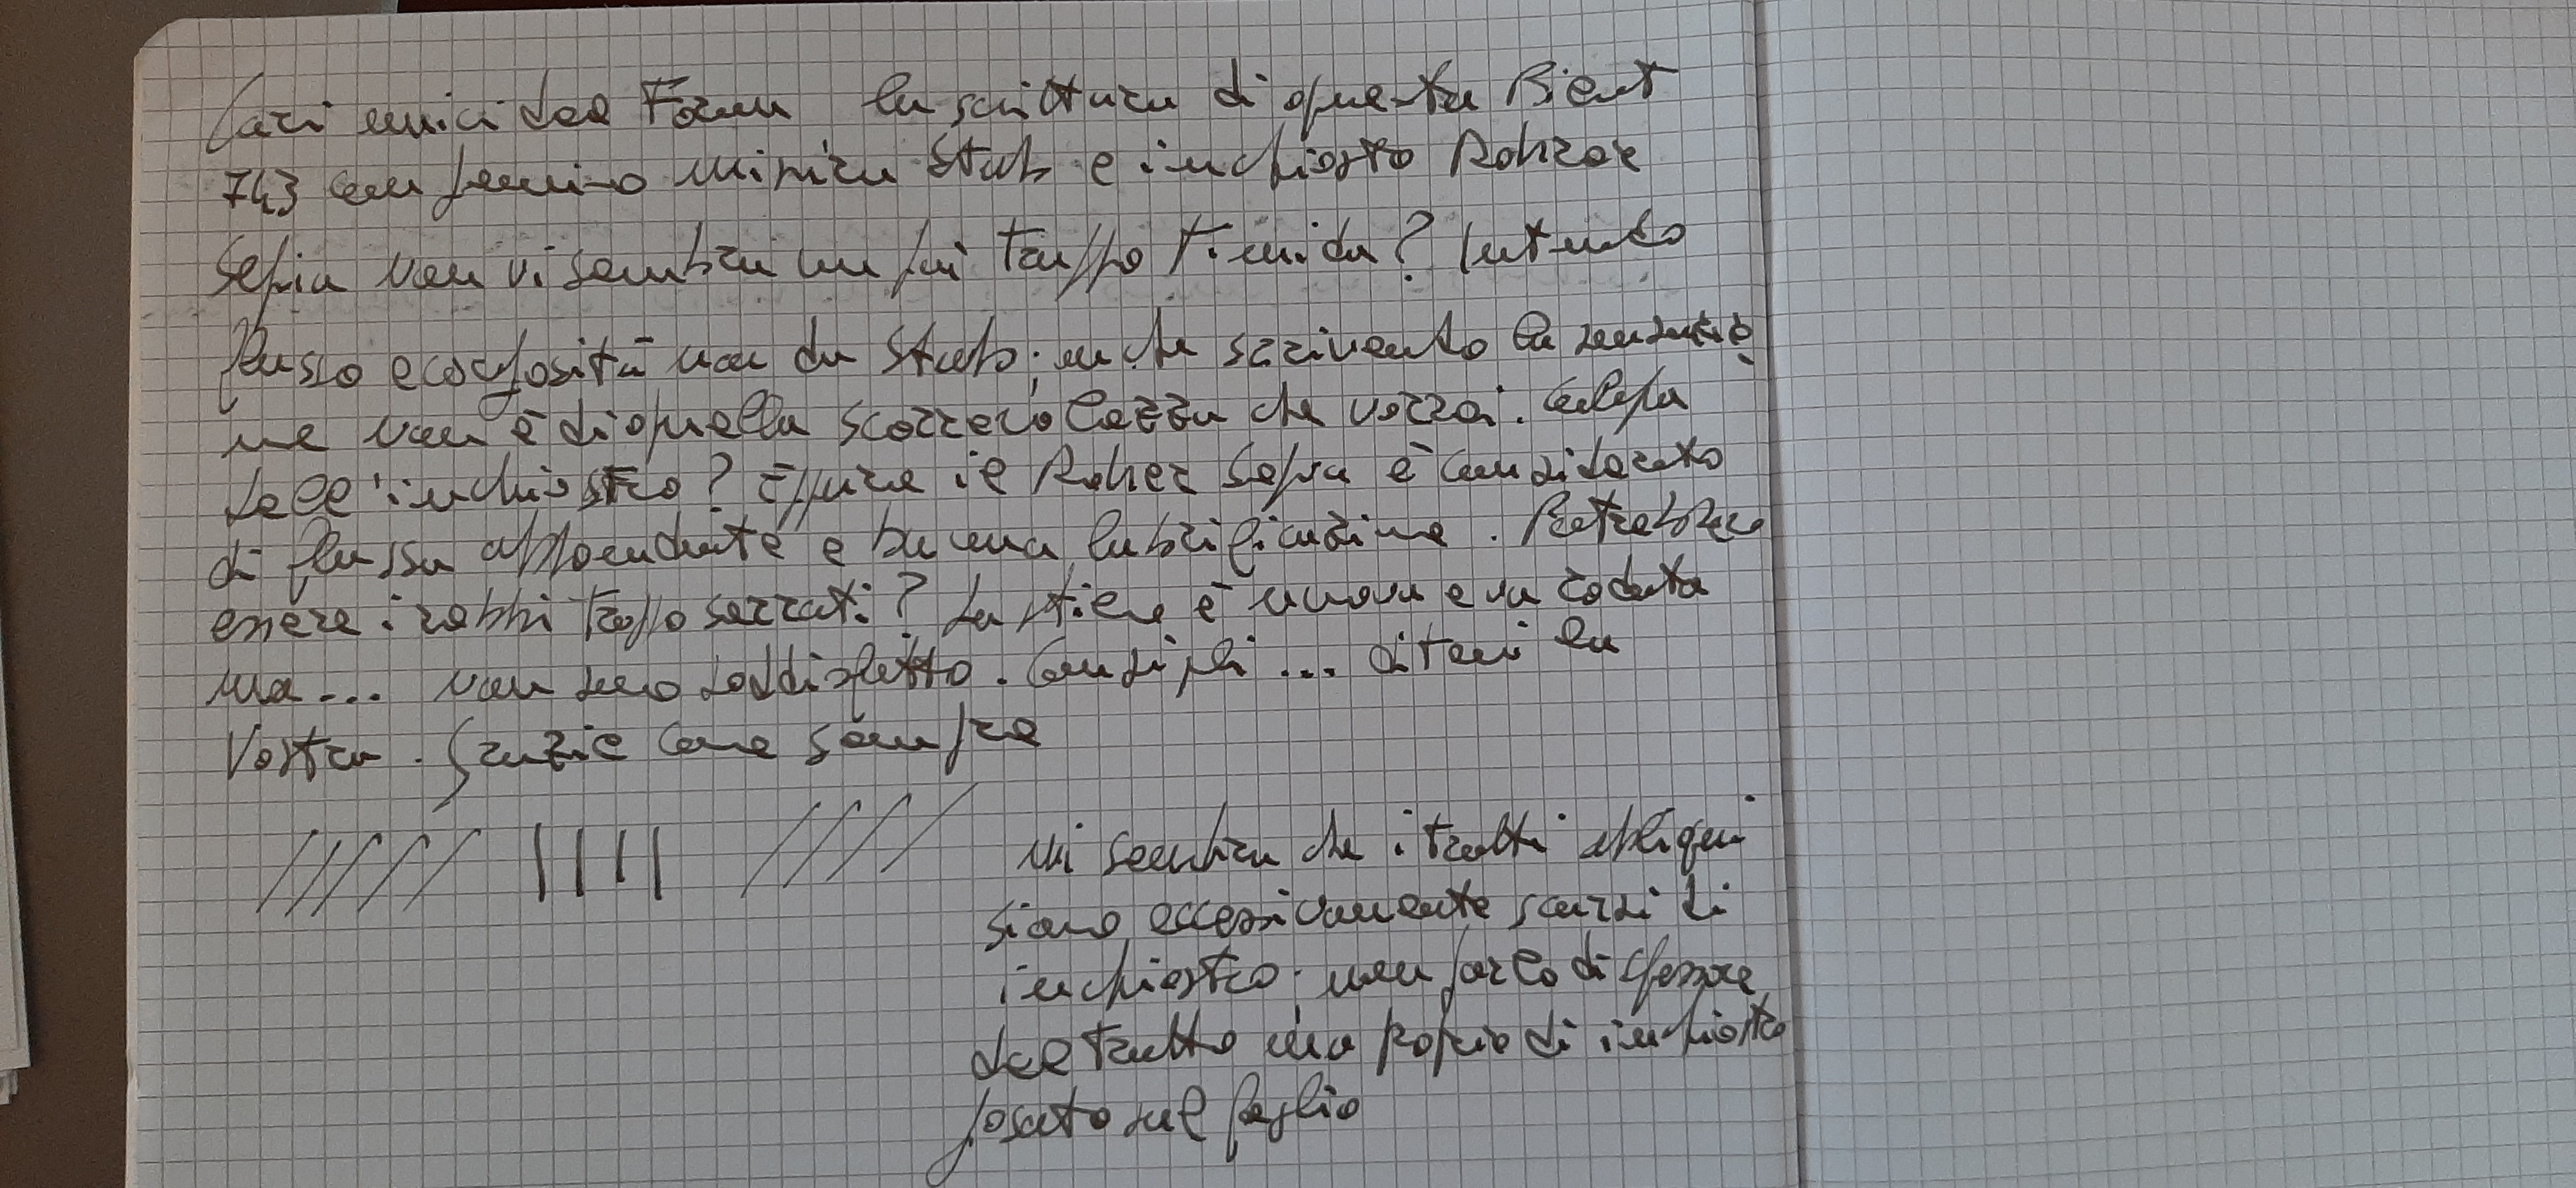 Cari amici del Forum la scrittura di questa Bient
743 con pennino misura Stub e inchiostro Rohrer
Sepia non vi sembra un poi troppo timida? Intendo
flusso e corposità non da Stub; anche scrivendo la sensazio
ne non è di quella scorrevolezza che vorrei. Colpa
dell'inchiostro? Eppure il Rohrer Sepia è considerato
di flusso abbondante e buona lubrificazione. Potrebbero
essere i rebbi troppo serrati? La stilo è nuova e va rodata
ma... non sono soddisfatto. Consigli... ditemi la
Vostra. Grazie come sempre
Mi sembra che i tratti obliqui
siano eccessivamente scarsi di
inchiostro; non parlo di spessore
del tratto ma proprio di inchiostro
posato sul foglio